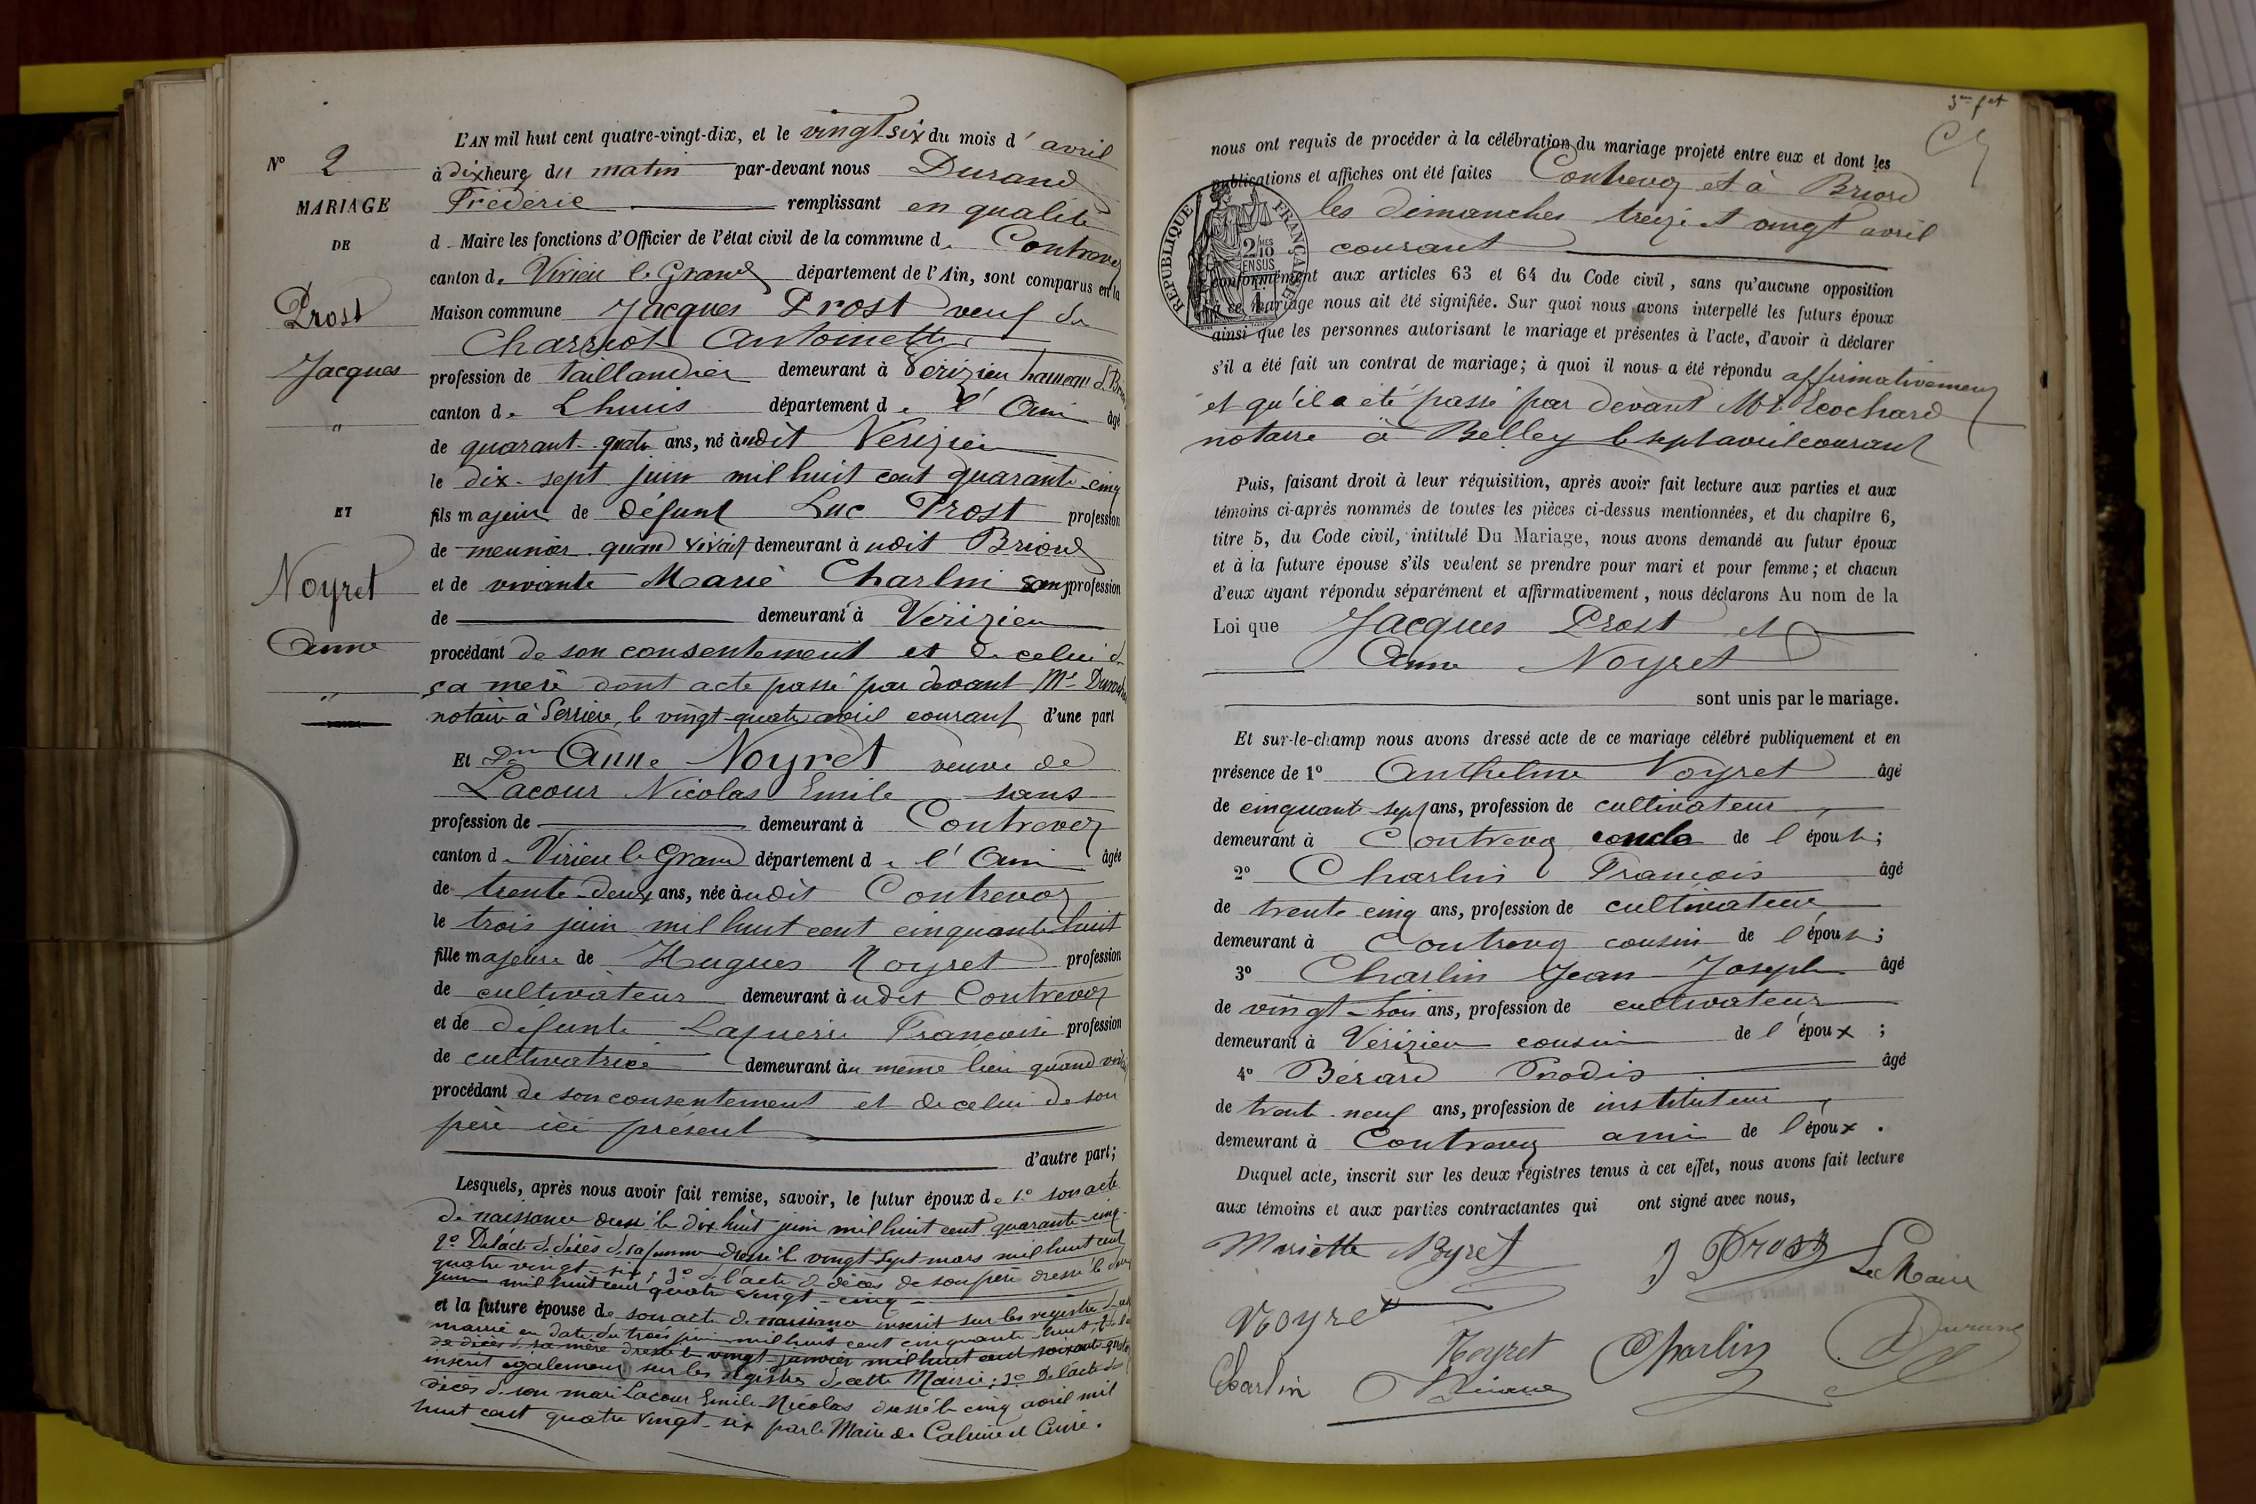 N° 2
MARIAGE
DE
Prost
Jacques
"
ET
Noyret
Anne
"
L'AN mil huit cent quatre-vingt-dix, et le vingt six du mois d'avril
à dix heures du matin par-devant nous Durand
Frédéric remplissant en qualité
d Maire les fonctions d'Officier de l'état civil de la commune de Contrevoz
canton de Virieu le Grand département de l'Ain, sont comparus en la
Maison commune Jacques Prost veuf de
Charriot Antoinette
profession de Taillandier demeurant à Vérizieu hameau de
canton de Lhuis département de l'Ain âgé
de quarante quatre ans, né audit Vérizieu
le dix-sept juin mil huit cent quarante-cinq
fils majeur de défunt Luc Prost profession
de meunier quand vivait demeurant à udit Briord
et de vivante Marie Charlin sans profession
de demeurant à Vérizieu
procédant de son consentement et de celui de
sa mère dont acte passé par devant Me
notaire à Serrières, le vingt-quatre avril courant d'une part
Et Dme Anne Noyret veuve de
Lacour Nicolas Emile sans
profession de demeurant à Contrevoz
canton de Virieu le Grand département de l'Ain âgée
de trente-deux ans, née audit Contrevoz
le trois juin mil huit cent cinquante huit
fille majeure de Hugues Noyret profession
de cultivateur demeurant à udit Contrevoz
et de défunte Françoise profession
de cultivatrice demeurant au même lieu quand
procédant de son consentement et de celui de son
père ici présent
d'autre part;
Lesquels, après nous avoir fait remise, savoir, le futur époux de 1° son acte
de naissance dressé le dix huit juin mil huit cent quarante-cinq
2° De l'acte de décès de sa femme dressé le vingt sept mars mil huit cent
quatre vingt-six; 3° de l'acte de décès de son père dressé le
juin mil huit cent quatre vingt-cinq
et la future épouse de son acte de naissance inscrit sur les registres de
mairie en date du trois juin mil huit cent cinquante huit, 2° de
de décès de sa mère dressé le vingt janvier mil huit cent soixante
inscrit également sur les registres de cette Mairie; 3° De l'acte de
décès de son mari Lacour Emile Nicolas dressé le cinq avril mil
huit cent quatre vingt-six par le Maire de Caluire et Cuire.
nous ont requis de procéder à la célébration du mariage projeté entre eux et dont les
publications et affiches ont été faites Contrevoz et à Briord
les dimanches treize et vingt avril
courant
RÉPUBLIQUE FRANÇAISE
2/10 EN SUS
conformément aux articles 63 et 64 du Code civil, sans qu'aucune opposition
à ce mariage nous ait été signifiée. Sur quoi nous avons interpellé les futurs époux
ainsi que les personnes autorisant le mariage et présentes à l'acte, d'avoir à déclarer
s'il a été fait un contrat de mariage; à quoi il nous a été répondu affirmativement
et qu'il a été passé par devant Me Ecochard
notaire à Belley le sept avril courant
Puis, faisant droit à leur réquisition, après avoir fait lecture aux parties et aux
témoins ci-après nommés de toutes les pièces ci-dessus mentionnées, et du chapitre 6,
titre 5, du Code civil, intitulé Du Mariage, nous avons demandé au futur époux
et à la future épouse s'ils veulent se prendre pour mari et pour femme; et chacun
d'eux ayant répondu séparément et affirmativement, nous déclarons Au nom de la
Loi que Jacques Prost et
Anne Noyret
sont unis par le mariage.
Et sur-le-champ nous avons dressé acte de ce mariage célébré publiquement et en
présence de 1° Anthelme Noyret âgé
de cinquante-sept ans, profession de cultivateur
demeurant à Contrevoz oncle de l'épouse;
2° Charlin François âgé
de trente cinq ans, profession de cultivateur
demeurant à Contrevoz cousin de l'épouse;
3° Charlin Jean Joseph âgé
de vingt-trois ans, profession de cultivateur
demeurant à Vérizieu cousin de l'époux;
4° Bérard âgé
de trente-neuf ans, profession de instituteur
demeurant à Contrevoz ami de l'époux.
Duquel acte, inscrit sur les deux registres tenus à cet effet, nous avons fait lecture
aux témoins et aux parties contractantes qui ont signé avec nous,
Mariette Noyret J Prost Le Maire
Noyret
Noyret Charlin Durand
Charlin Bérard